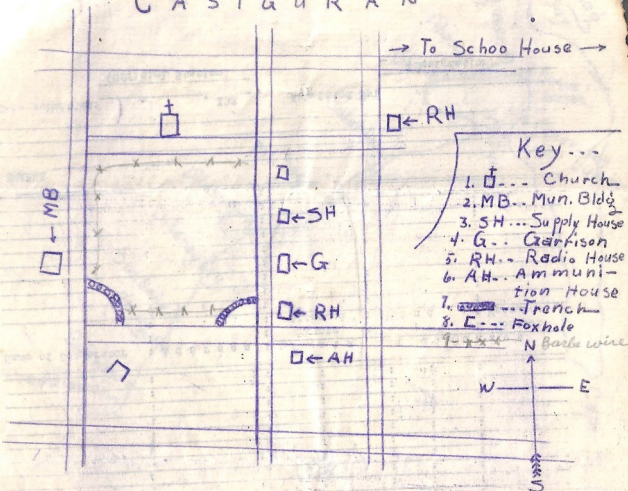 CASIGURAN
→ To School House →
← RH
← MB
← SH
← G
← RH
← AH
Key ...
1. --- Church
2. MB -- Mun. Bldg
3. SH --- Supply House
4. G -- Garrison
5. RH -- Radio House
6. AH -- Ammuni-
tion House
7. --- Trench
8. E --- Foxhole
9 -xxx Barbe wire
N
W
E
S